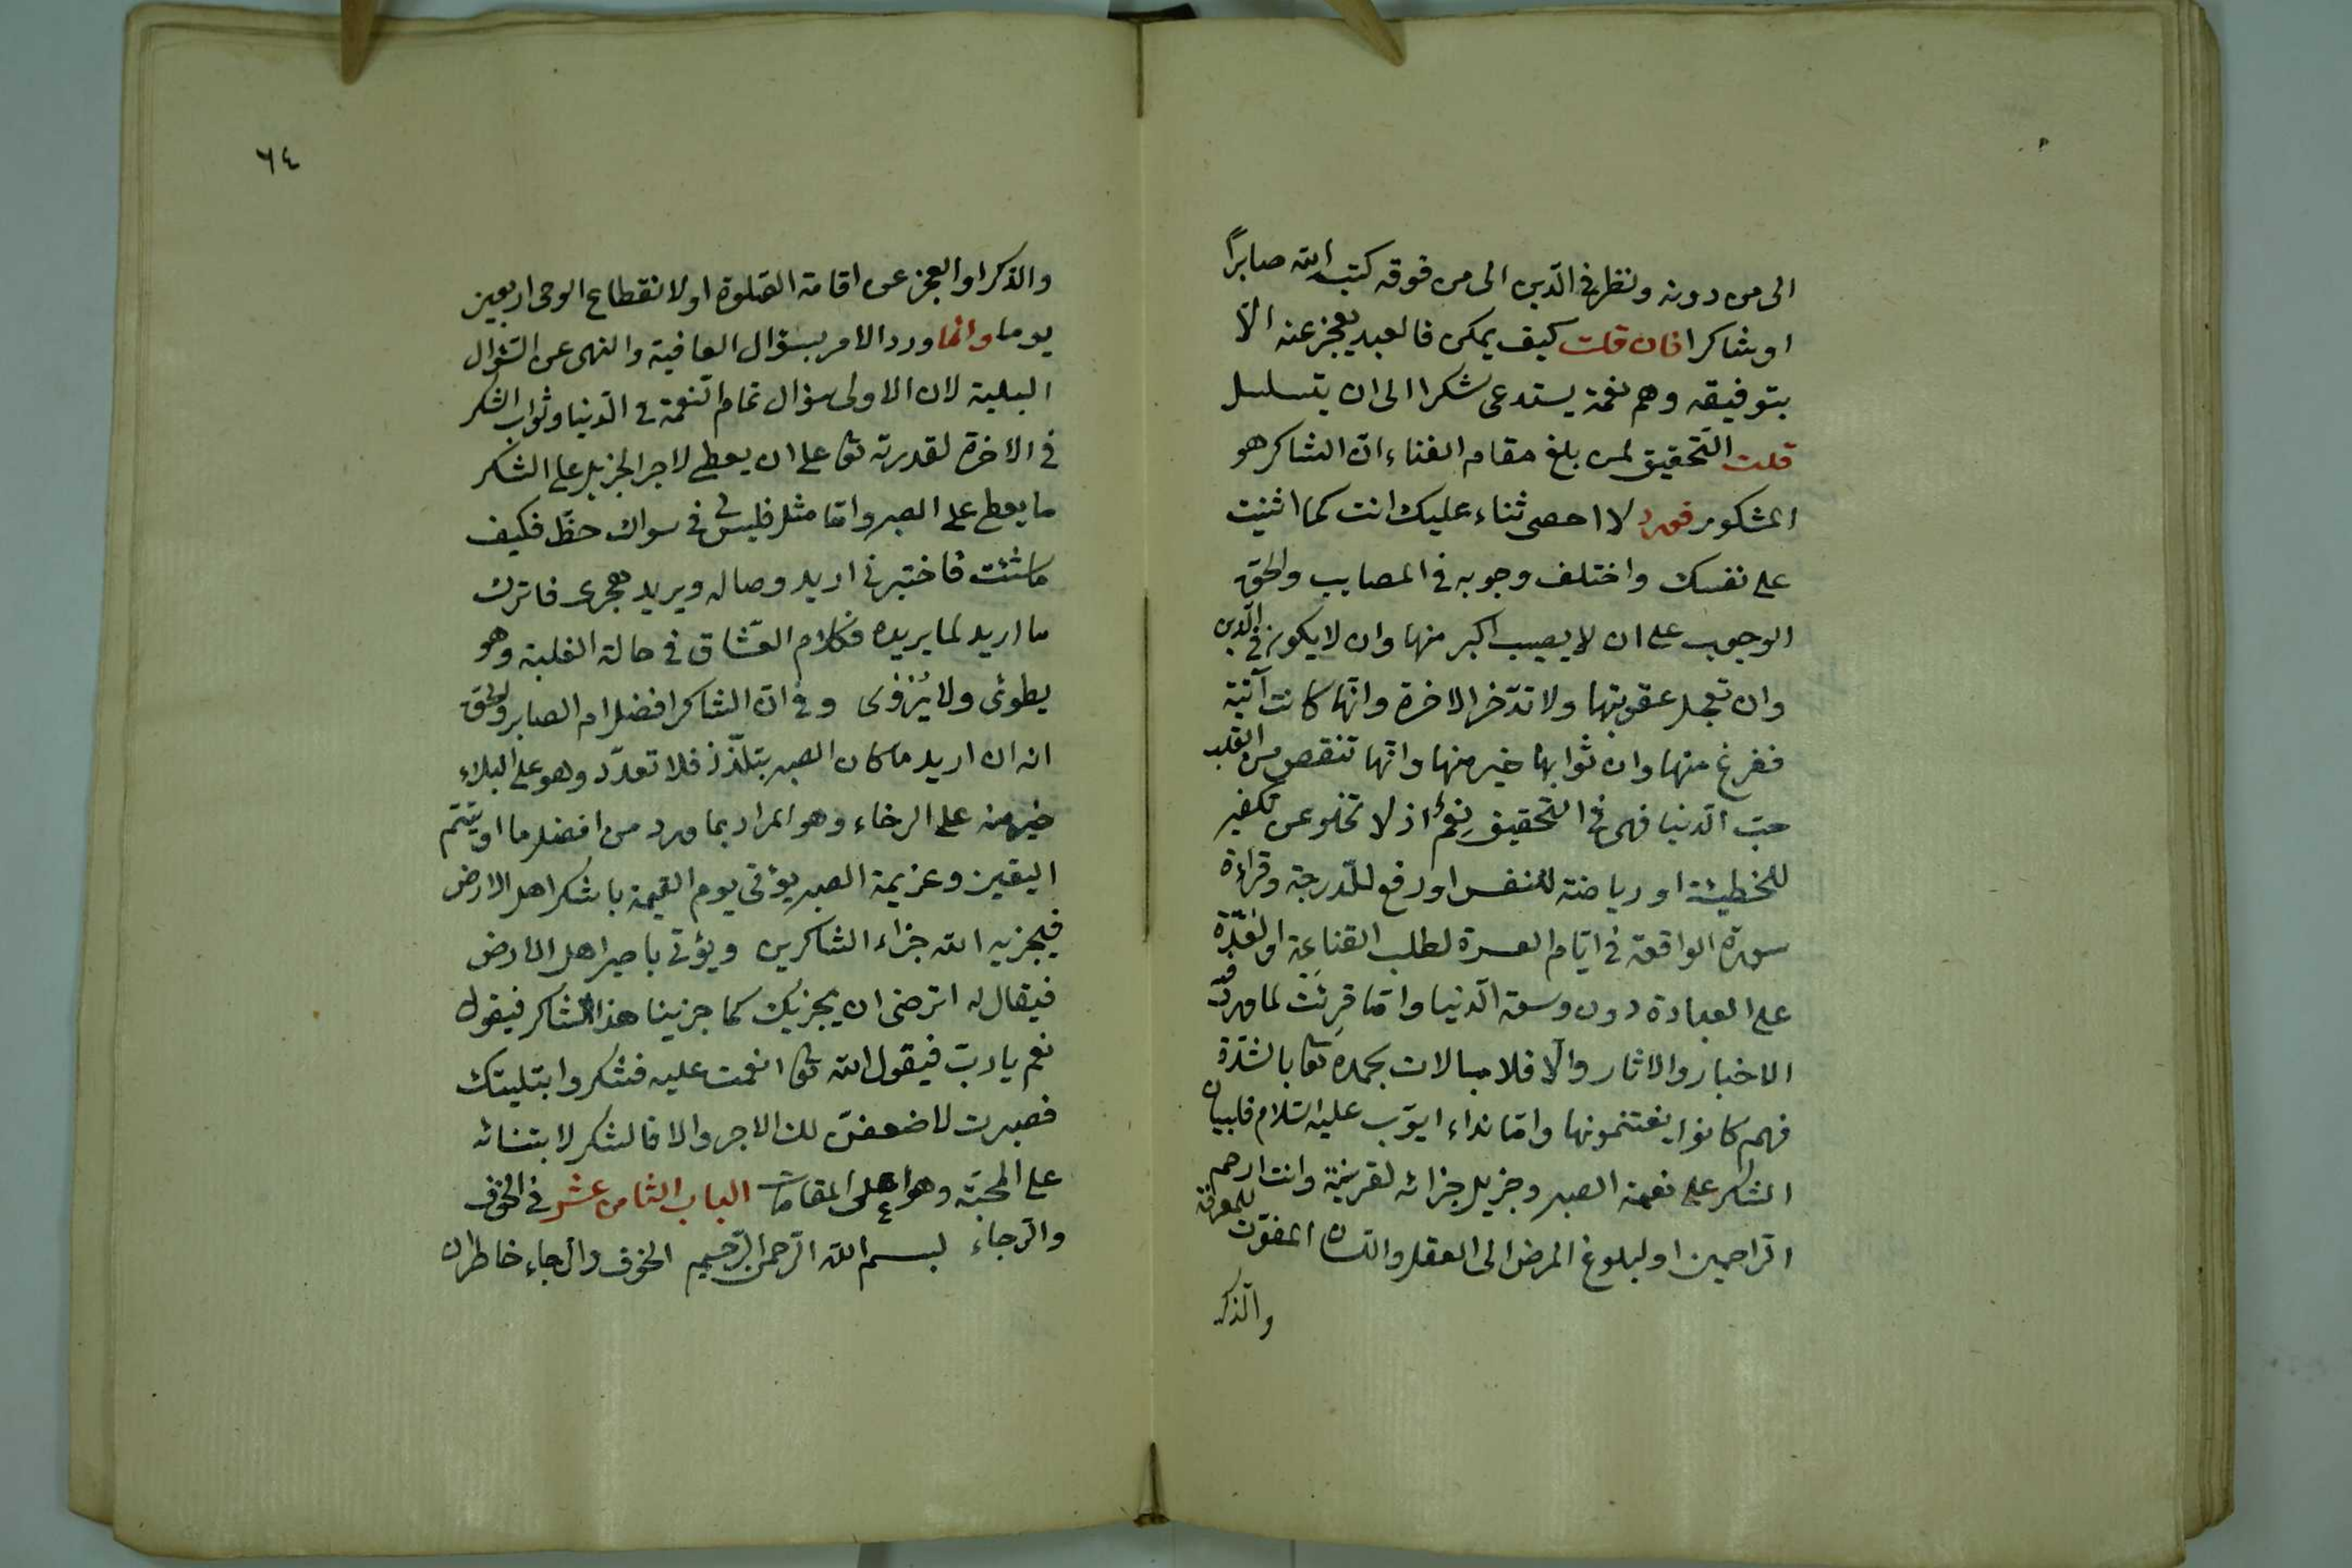 الى من دونه ونظر في الدين الى من فوقه كتبه الله صابرًا
او شاكرا فان قلت كيف يمكن فالعبد يعجز عنه الّا
بتوفيقه وهم نعمة يستدعى شكرا الى ان يتسلسل
قلت التحقيق لمن بلغ مقام الفناء انّ الشاكر هو
المشكور فورد لا احصى ثناء عليك انت كما اثنيت
على نفسك واختلف وجوبه في المصايب والحق
الوجوب على ان لا يصيب اكبر منها وان لا يكون في الدين
وان تعجل عقوبتها ولا تدّخر الاخرة وانّها كانت آتية
ففرغ منها وان ثوابها خير منها وانّها تنقص من القلب
حبّ الدنيا فهى في التحقيق نِعَمٌ اذ لا تخلو عن تكفير
للخطيئة او رياضة للنفس او رفع للدرجة وقراءة
سورة الواقعة في ايّام العسرة لطلب القناعة او القدرة
على العبادة دون وسعة الدنيا وانّما قرئت لما ورد في
الاخبار والاثار والّا فلا مبالات بحمده تعا بالشدّة
فهم كانوا يغتنمونها وامّا نداء ايّوب عليه السّلام فلبيان
الشكر على نعمة الصبر وجزيل جزائه لقرينة وانت ارحم
الرّاحمين او لبلوغ المرض الى العقل واللسان المفوّت للمعرفة
والذكر
٦٤
والذكر او العجز عن اقامة الصّلوة او لانقطاع الوحى اربعين
يوما وانما ورد الامر بسؤال العافية والنهى عن السّؤال
البلية لان الاولى سؤال تمام النّعمة في الدّنيا وثواب الشكر
في الاخرة لقدرته تعا على ان يعطى لاجر الجزيل على الشكر
ما يعطى على الصبر وامّا مثل فليس لى في سواك حظّ فكيف
ما شئت فاختبرنى اريد وصاله ويريد هجرى فاترك
ما اريد لما يريده فكلام العشّاق في حالة الغلبة وهو
يطوى ولا يُروى وفي انّ الشاكر افضل ام الصابر والحق
انه ان اريد ما كان الصبر بتلذّذ فلا تعدّد وهو على البلاء
خير منه على الرخاء وهو المراد بما ورد من افضل ما اوتيتم
اليقين وعزيمة الصبر يؤتى يوم القيمة باشكر اهل الارض
فيجزيه الله جزاء الشاكرين ويؤتى باصبر اهل الارض
فيقال له اترضى ان نجزيك كما جزينا هذا الشاكر فيقول
نعم يا ربّ فيقول الله تعا انعمت عليه فشكر وابتليتك
فصبرت لاضعفنّ لك الاجر والا فالشكر لابتنائه
على المحبّة وهو اعلى المقامات الباب الثامن عشر في الخوف
والرّجاء بسم الله الرّحمن الرّحيم الخوف والرجاء خاطران